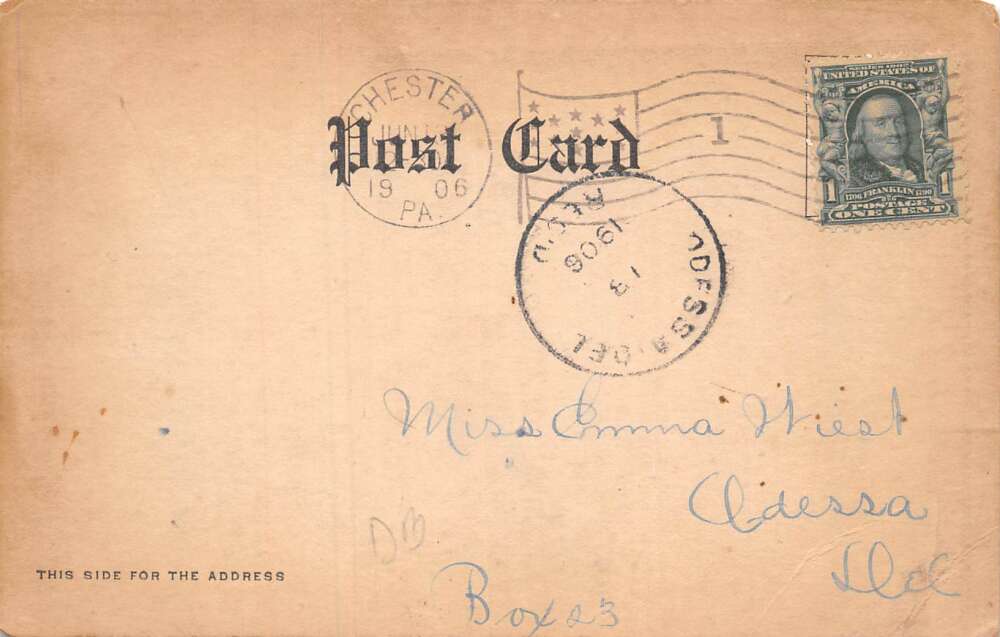 CHESTER
JUN
19 06
PA.
Post Card
1
SERIES 1902
UNITED STATES OF
AMERICA
1 1
1706 FRANKLIN 1790
POSTAGE
ONE CENT
ODESSA DEL
REC'D
1906
13
Miss Emma Wiest
Odessa
Del
DB
THIS SIDE FOR THE ADDRESS
Box 23